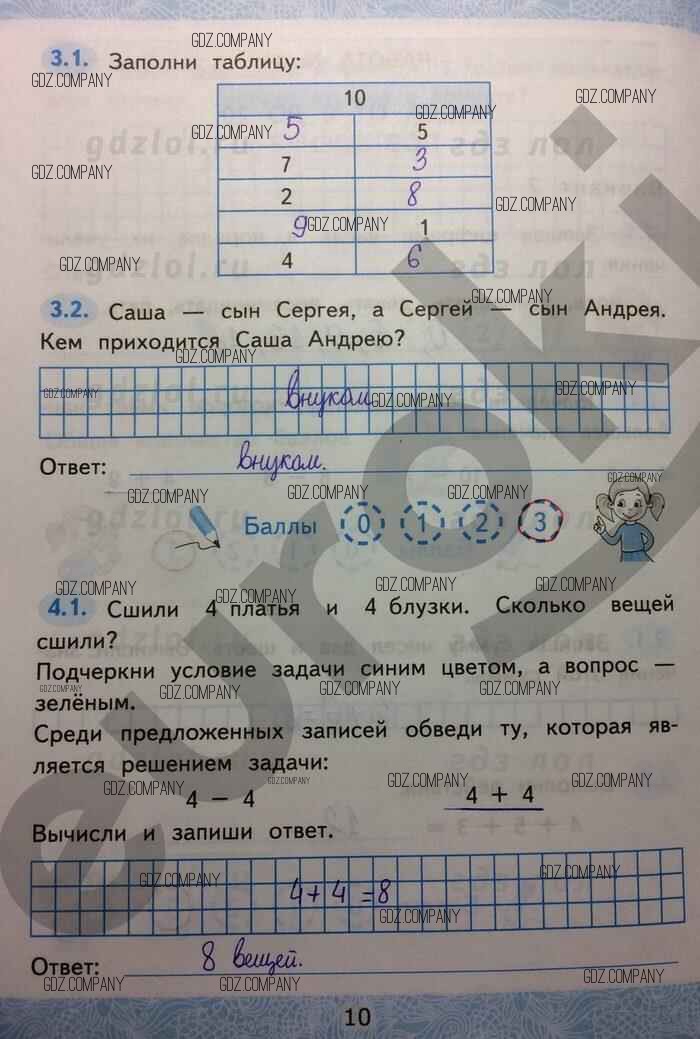 3.1. Заполни таблицу:
10
5 5
7 3
2 8
9 1
4 6
3.2. Саша — сын Сергея, а Сергей — сын Андрея.
Кем приходится Саша Андрею?
внуком
Ответ: внуком.
Баллы 0 1 2 3
4.1. Сшили 4 платья и 4 блузки. Сколько вещей
сшили?
Подчеркни условие задачи синим цветом, а вопрос —
зелёным.
Среди предложенных записей обведи ту, которая яв-
ляется решением задачи:
4 – 4 4 + 4
Вычисли и запиши ответ.
4+4=8
Ответ: 8 вещей.
10
GDZ.COMPANY
euroki